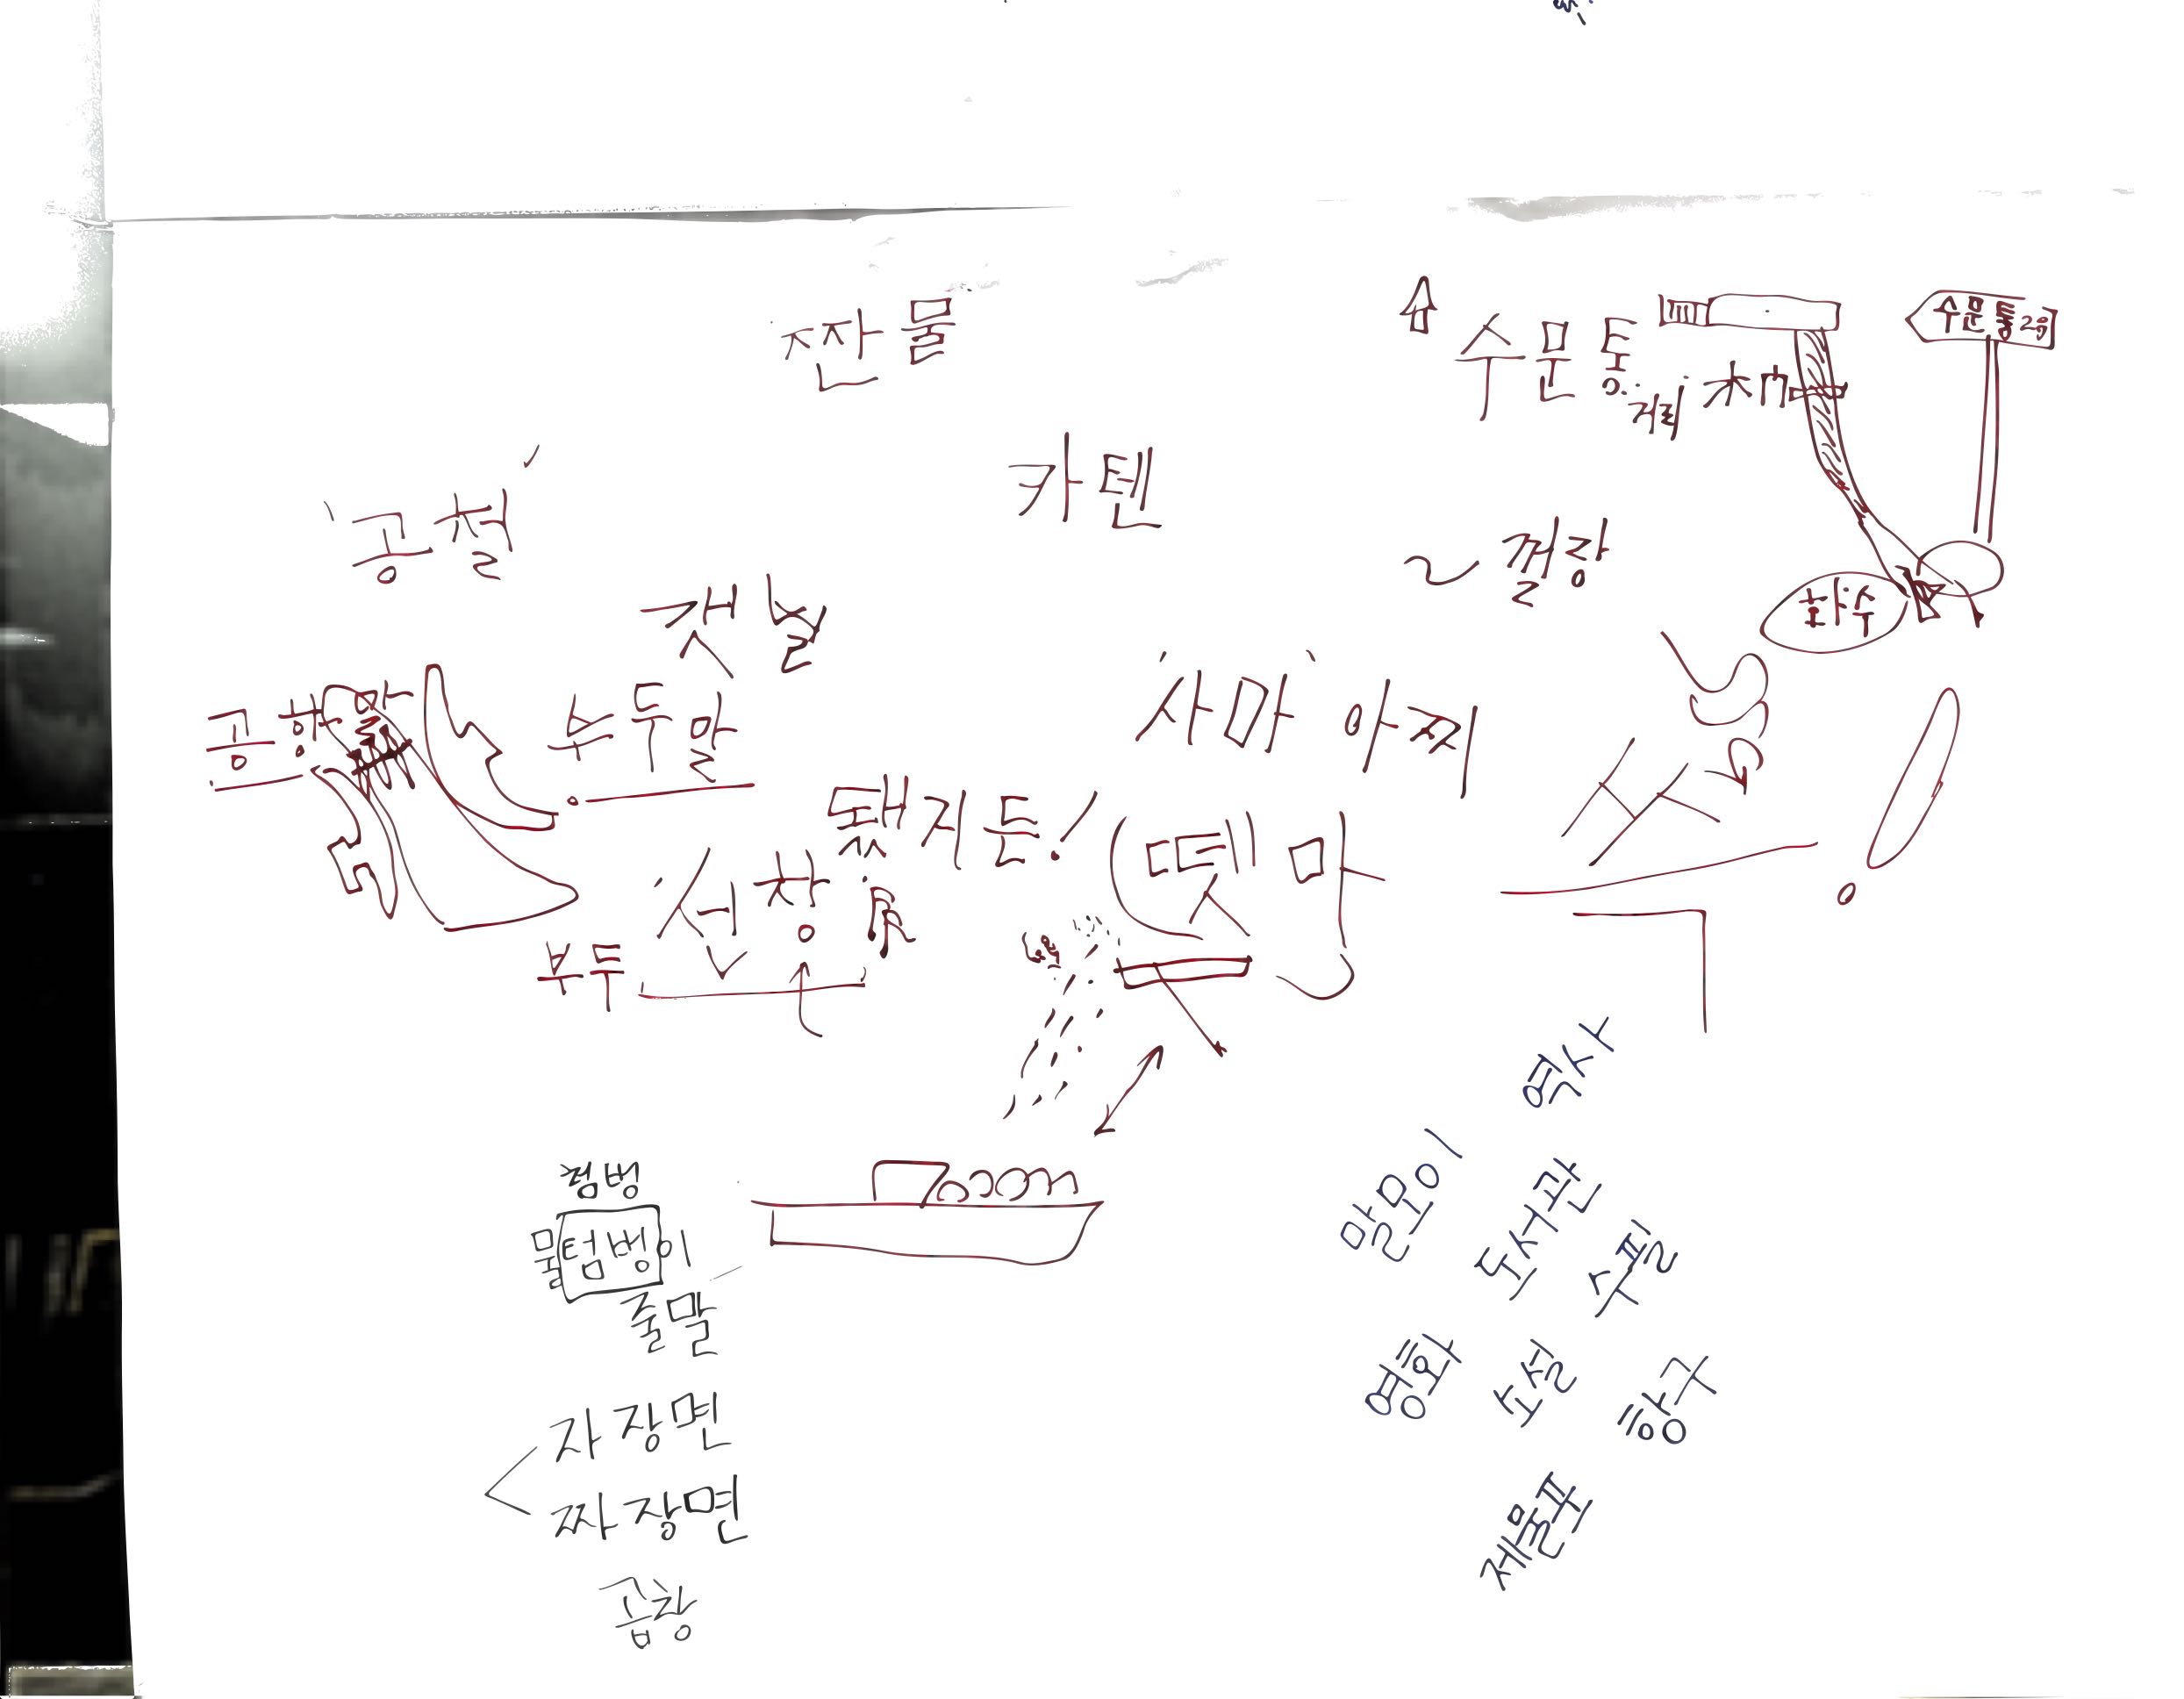 짠물
수문통
거리 水門
수문통2号
카텐
공철
껄랑
화수
갯날
공항말
부두말
'사마' 아찌
됐지든!
(뗏마
선창
부두
역사
말모이
도서관
수필
영화
소설
항구
제물포
첨벙
물텀벙이
줄말
자장면
짜장면
곱창